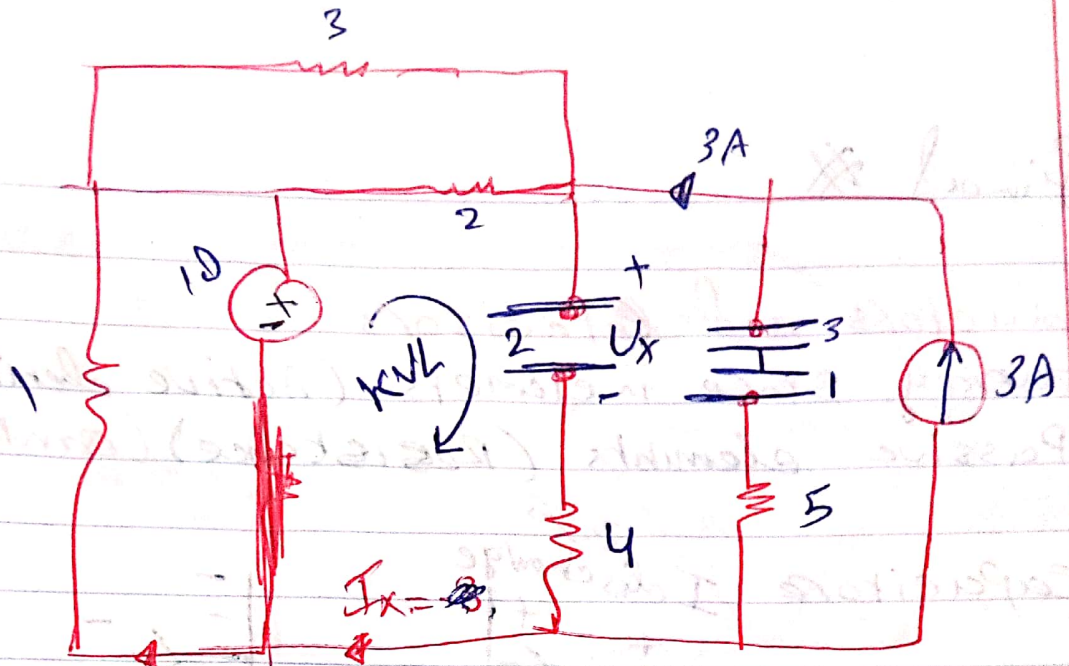 3
3A
2
10
+
-
KVL
+
2 Ux
-
3
1
3A
1
5
4
Ix =